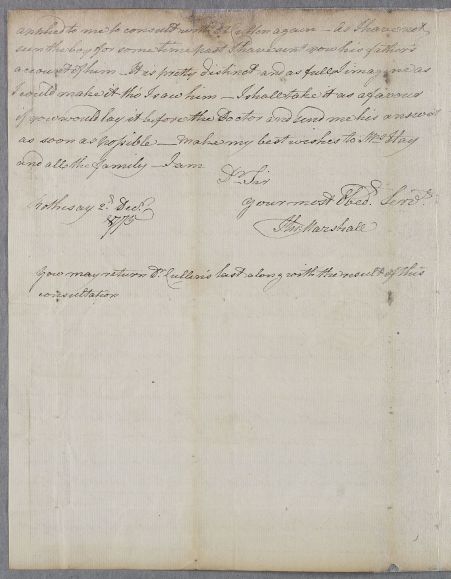 applied to me to consult with Dr. again — As I have not
seen the boy for some time past I have sent you his father's
account of him — It is pretty distinct and as full I imagine as
I could make it tho I saw him — I shall take it as a favour
if you would lay it before the Doctor and send me his answer
as soon as possible — make my best wishes to Mrs Hay
and all the family — I am
Dr Sir
Rothesay 2d. Decr. your most Obed. Servt.
Marshall
You may return Dr. Cullen's last along with the result of this
consultation